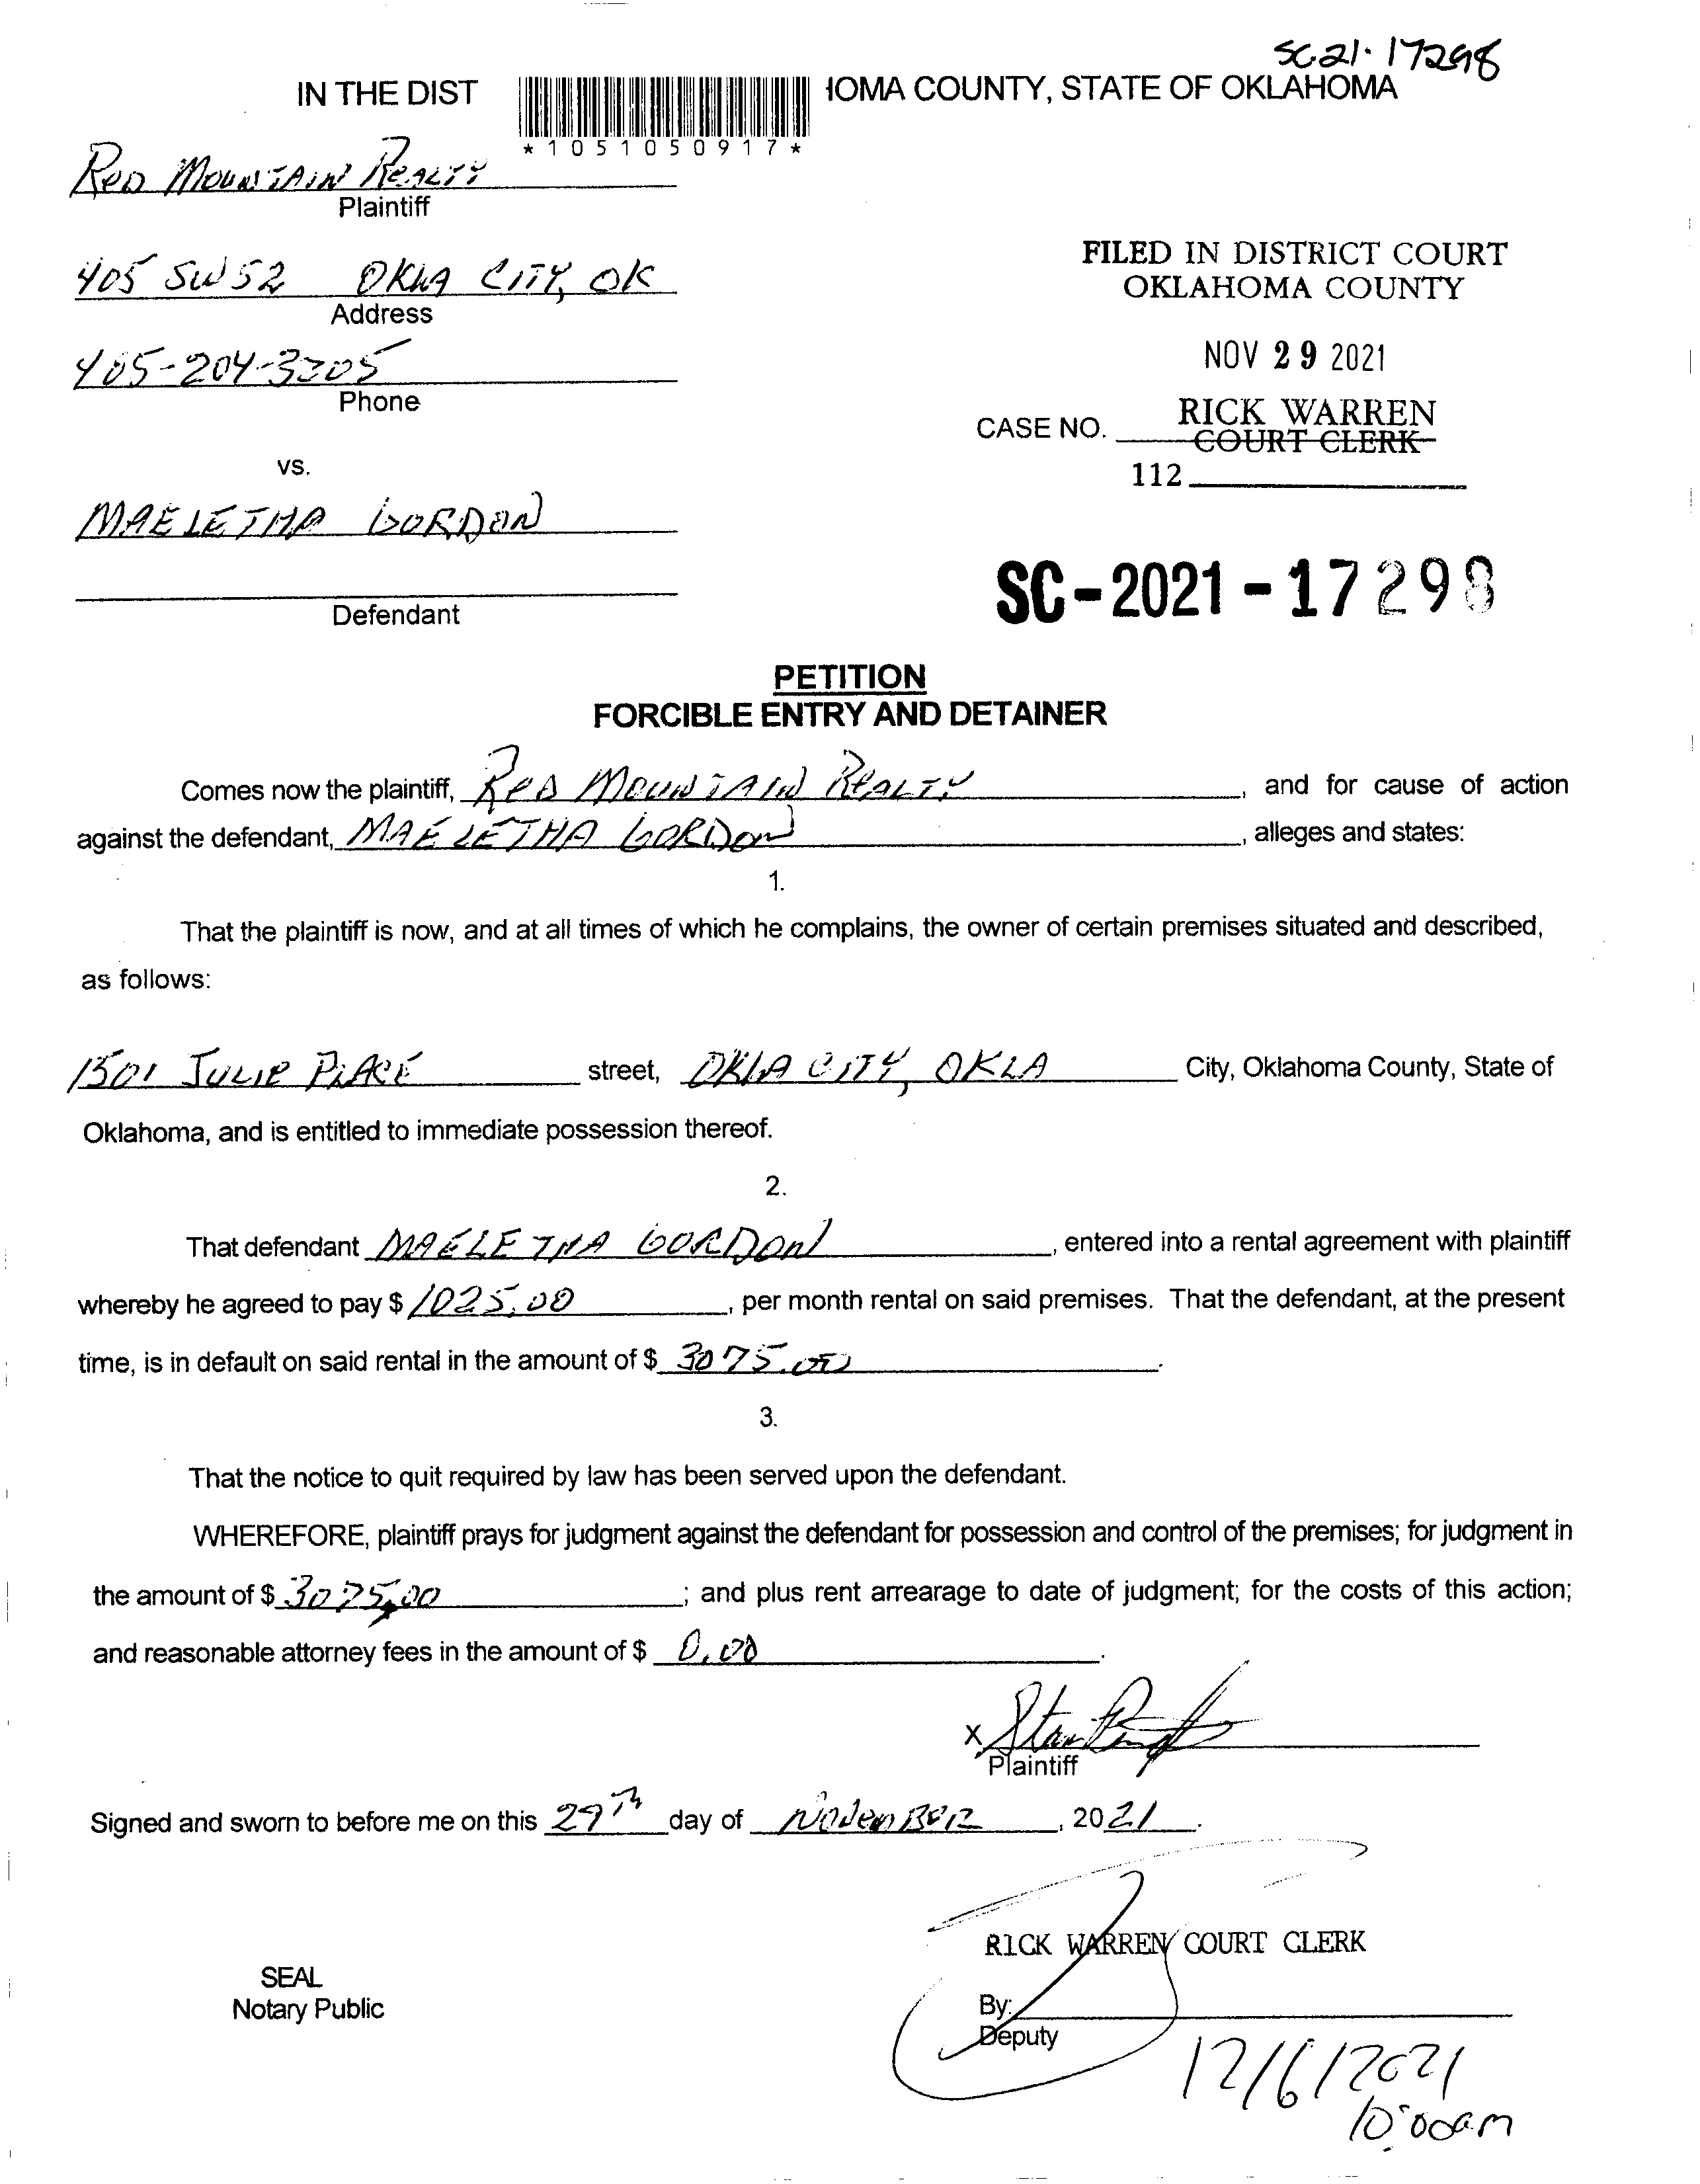 SC-21-17298
IN THE DIST IOMA COUNTY, STATE OF OKLAHOMA
*1051050917*
RED MOUNTAIN REALTY
Plaintiff
405 SW 52 OKLA CITY, OK
Address
FILED IN DISTRICT COURT
OKLAHOMA COUNTY
405-204-3205
Phone
NOV 29 2021
CASE NO. RICK WARREN
COURT CLERK
vs.
112
MAELETHA GORDON
Defendant
SC-2021-17298
PETITION
FORCIBLE ENTRY AND DETAINER
Comes now the plaintiff, RED MOUNTAIN REALTY, and for cause of action
against the defendant, MAELETHA GORDON, alleges and states:
1.
That the plaintiff is now, and at all times of which he complains, the owner of certain premises situated and described,
as follows:
1501 JULIE PLACE street, OKLA CITY, OKLA City, Oklahoma County, State of
Oklahoma, and is entitled to immediate possession thereof.
2.
That defendant MAELETHA GORDON, entered into a rental agreement with plaintiff
whereby he agreed to pay $ 1025.00, per month rental on said premises. That the defendant, at the present
time, is in default on said rental in the amount of $ 3075.00.
3.
That the notice to quit required by law has been served upon the defendant.
WHEREFORE, plaintiff prays for judgment against the defendant for possession and control of the premises; for judgment in
the amount of $ 3075.00; and plus rent arrearage to date of judgment; for the costs of this action;
and reasonable attorney fees in the amount of $ 0.00.
X
Plaintiff
Signed and sworn to before me on this 29TH day of NOVEMBER, 2021.
RICK WARREN COURT CLERK
SEAL
Notary Public
By:
Deputy
12/6/2021
10:00am